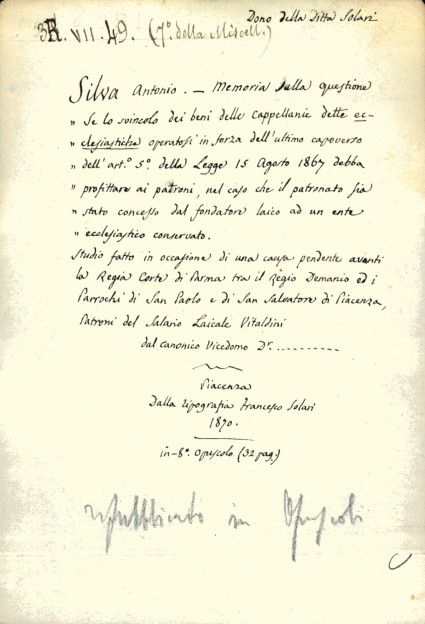 Dono della Ditta Solari
3R. VII. 49. (7º. della Miscell.)
Silva Antonio. — Memoria sulla questione
" Se lo svincolo dei beni delle Cappellanie dette ec-
" clesiastiche operatosi in forza dell'ultimo capoverso
" dell'art.º 5º. della Legge 15 Agosto 1867 debba
" profittare ai patroni, nel caso che il patronato sia
" stato concesso dal fondatore laico ad un ente
" ecclesiastico conservato.
Studio fatto in occasione di una causa pendente avanti
la Regia Corte di Parma tra il Regio Demanio ed i
Parrochi di San Paolo e di San Salvatore di Piacenza,
Patroni del Salario Laicale Vitaldini
dal canonico Vicedomo Dr. ..........
Piacenza
Dalla tipografia Francesco Solari
1870.
in-8º. Opuscolo (32 pag.)
ripubblicato in Opuscoli